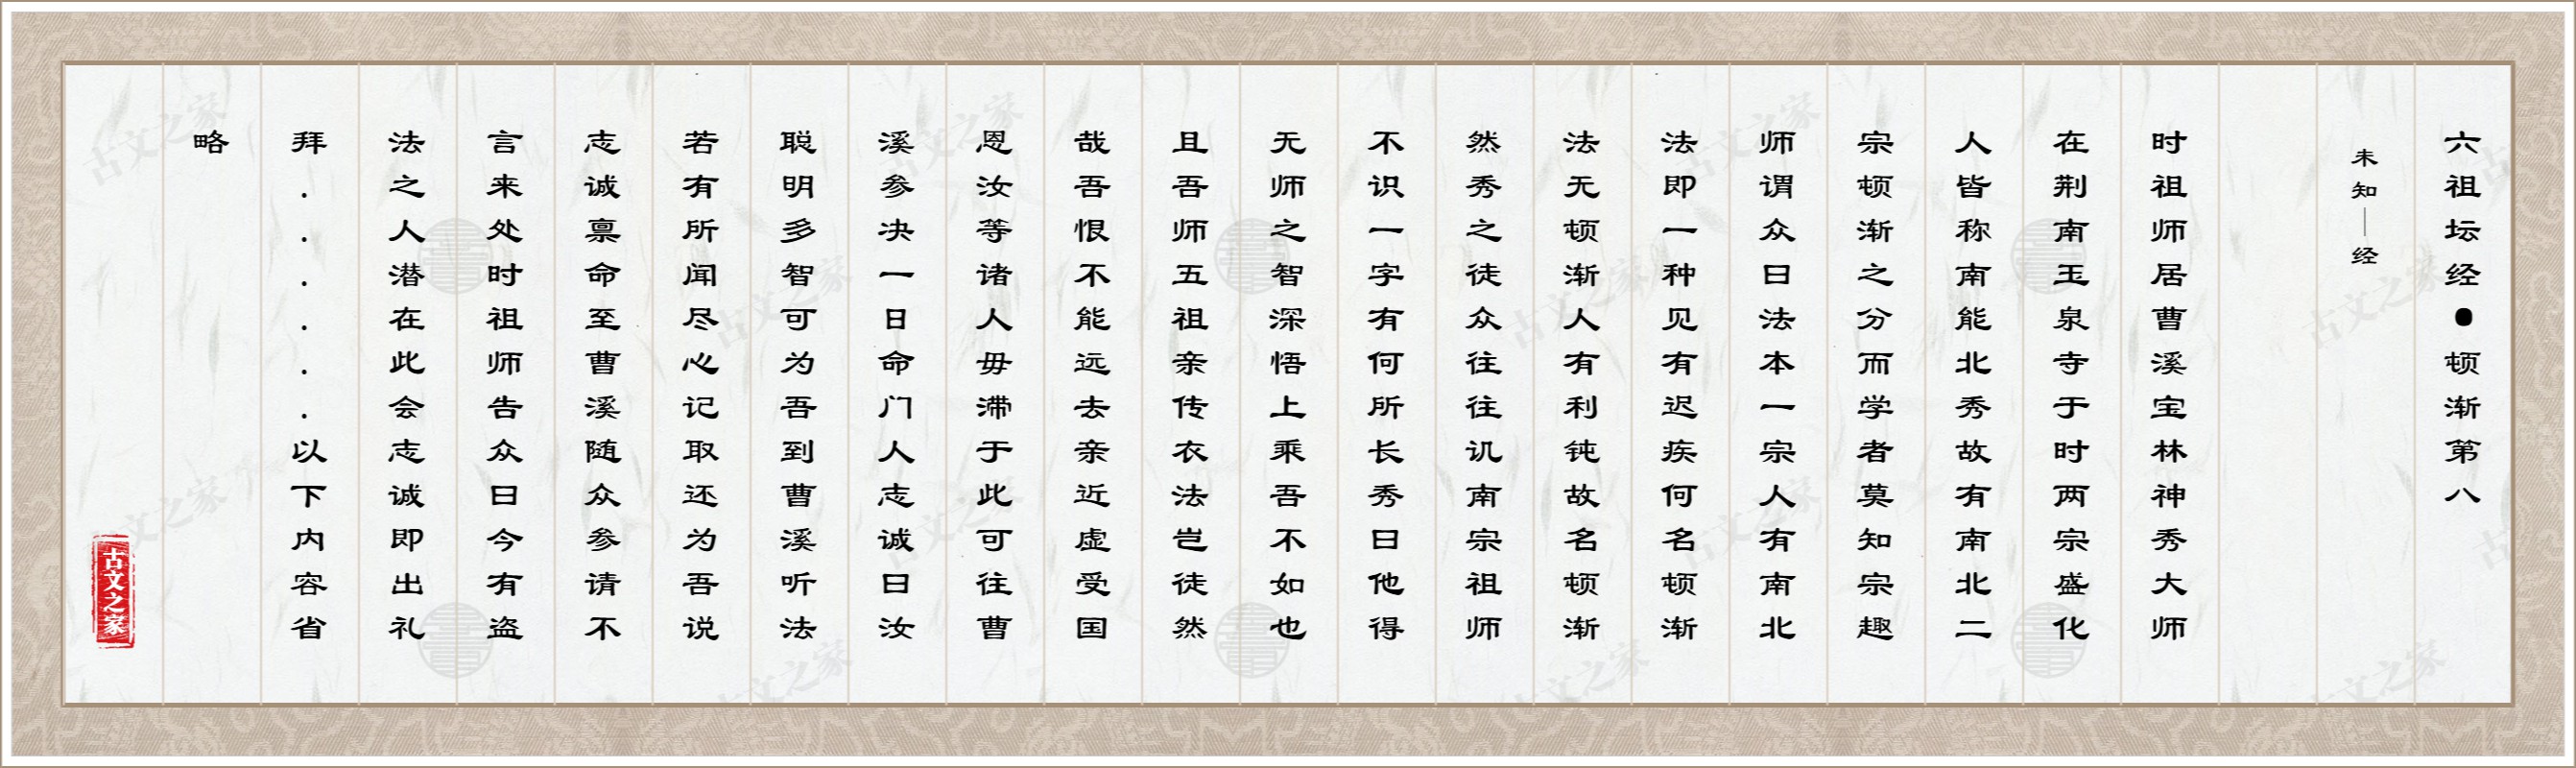 六祖坛经●顿渐第八
未知—经
时祖师居曹溪宝林神秀大师
在荆南玉泉寺于时两宗盛化
人皆称南能北秀故有南北二
宗顿渐之分而学者莫知宗趣
师谓众曰法本一宗人有南北
法即一种见有迟疾何名顿渐
法无顿渐人有利钝故名顿渐
然秀之徒众往往讥南宗祖师
不识一字有何所长秀曰他得
无师之智深悟上乘吾不如也
且吾师五祖亲传衣法岂徒然
哉吾恨不能远去亲近虚受国
恩汝等诸人毋滞于此可往曹
溪参决一日命门人志诚曰汝
聪明多智可为吾到曹溪听法
若有所闻尽心记取还为吾说
志诚禀命至曹溪随众参请不
言来处时祖师告众曰今有盗
法之人潜在此会志诚即出礼
拜......以下内容省
略
古文之家